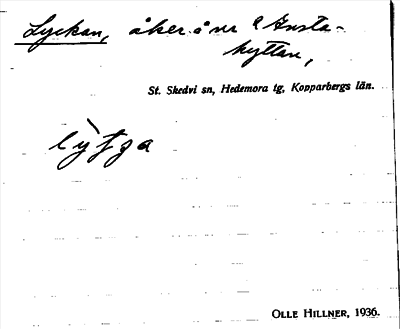 Lyckan, åker å nr 2 Gusta-
hyttan,
St. Skedvi sn, Hedemora tg, Kopparbergs län.
OLLE HILLNER, 1936.